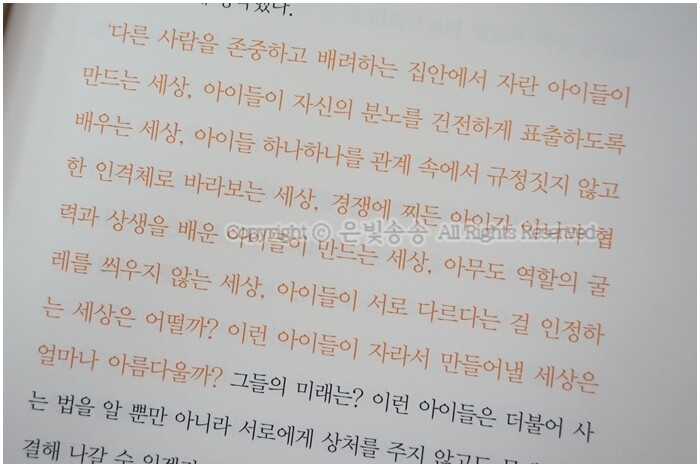 '다른 사람을 존중하고 배려하는 집안에서 자란 아이들이
만드는 세상, 아이들이 자신의 분노를 건전하게 표출하도록
배우는 세상, 아이들 하나하나를 관계 속에서 규정짓지 않고
한 인격체로 바라보는 세상, 경쟁에 찌든 아이가 아니라 협
력과 상생을 배운 아이들이 만드는 세상, 아무도 역할의 굴
레를 씌우지 않는 세상, 아이들이 서로 다르다는 걸 인정하
는 세상은 어떨까? 이런 아이들이 자라서 만들어낼 세상은
얼마나 아름다울까? 그들의 미래는? 이런 아이들은 더불어 사
는 법을 알 뿐만 아니라 서로에게 상처를 주지 않고도
결해 나갈 수
Copyright ⓒ 은빛송송 All Rights Reserved